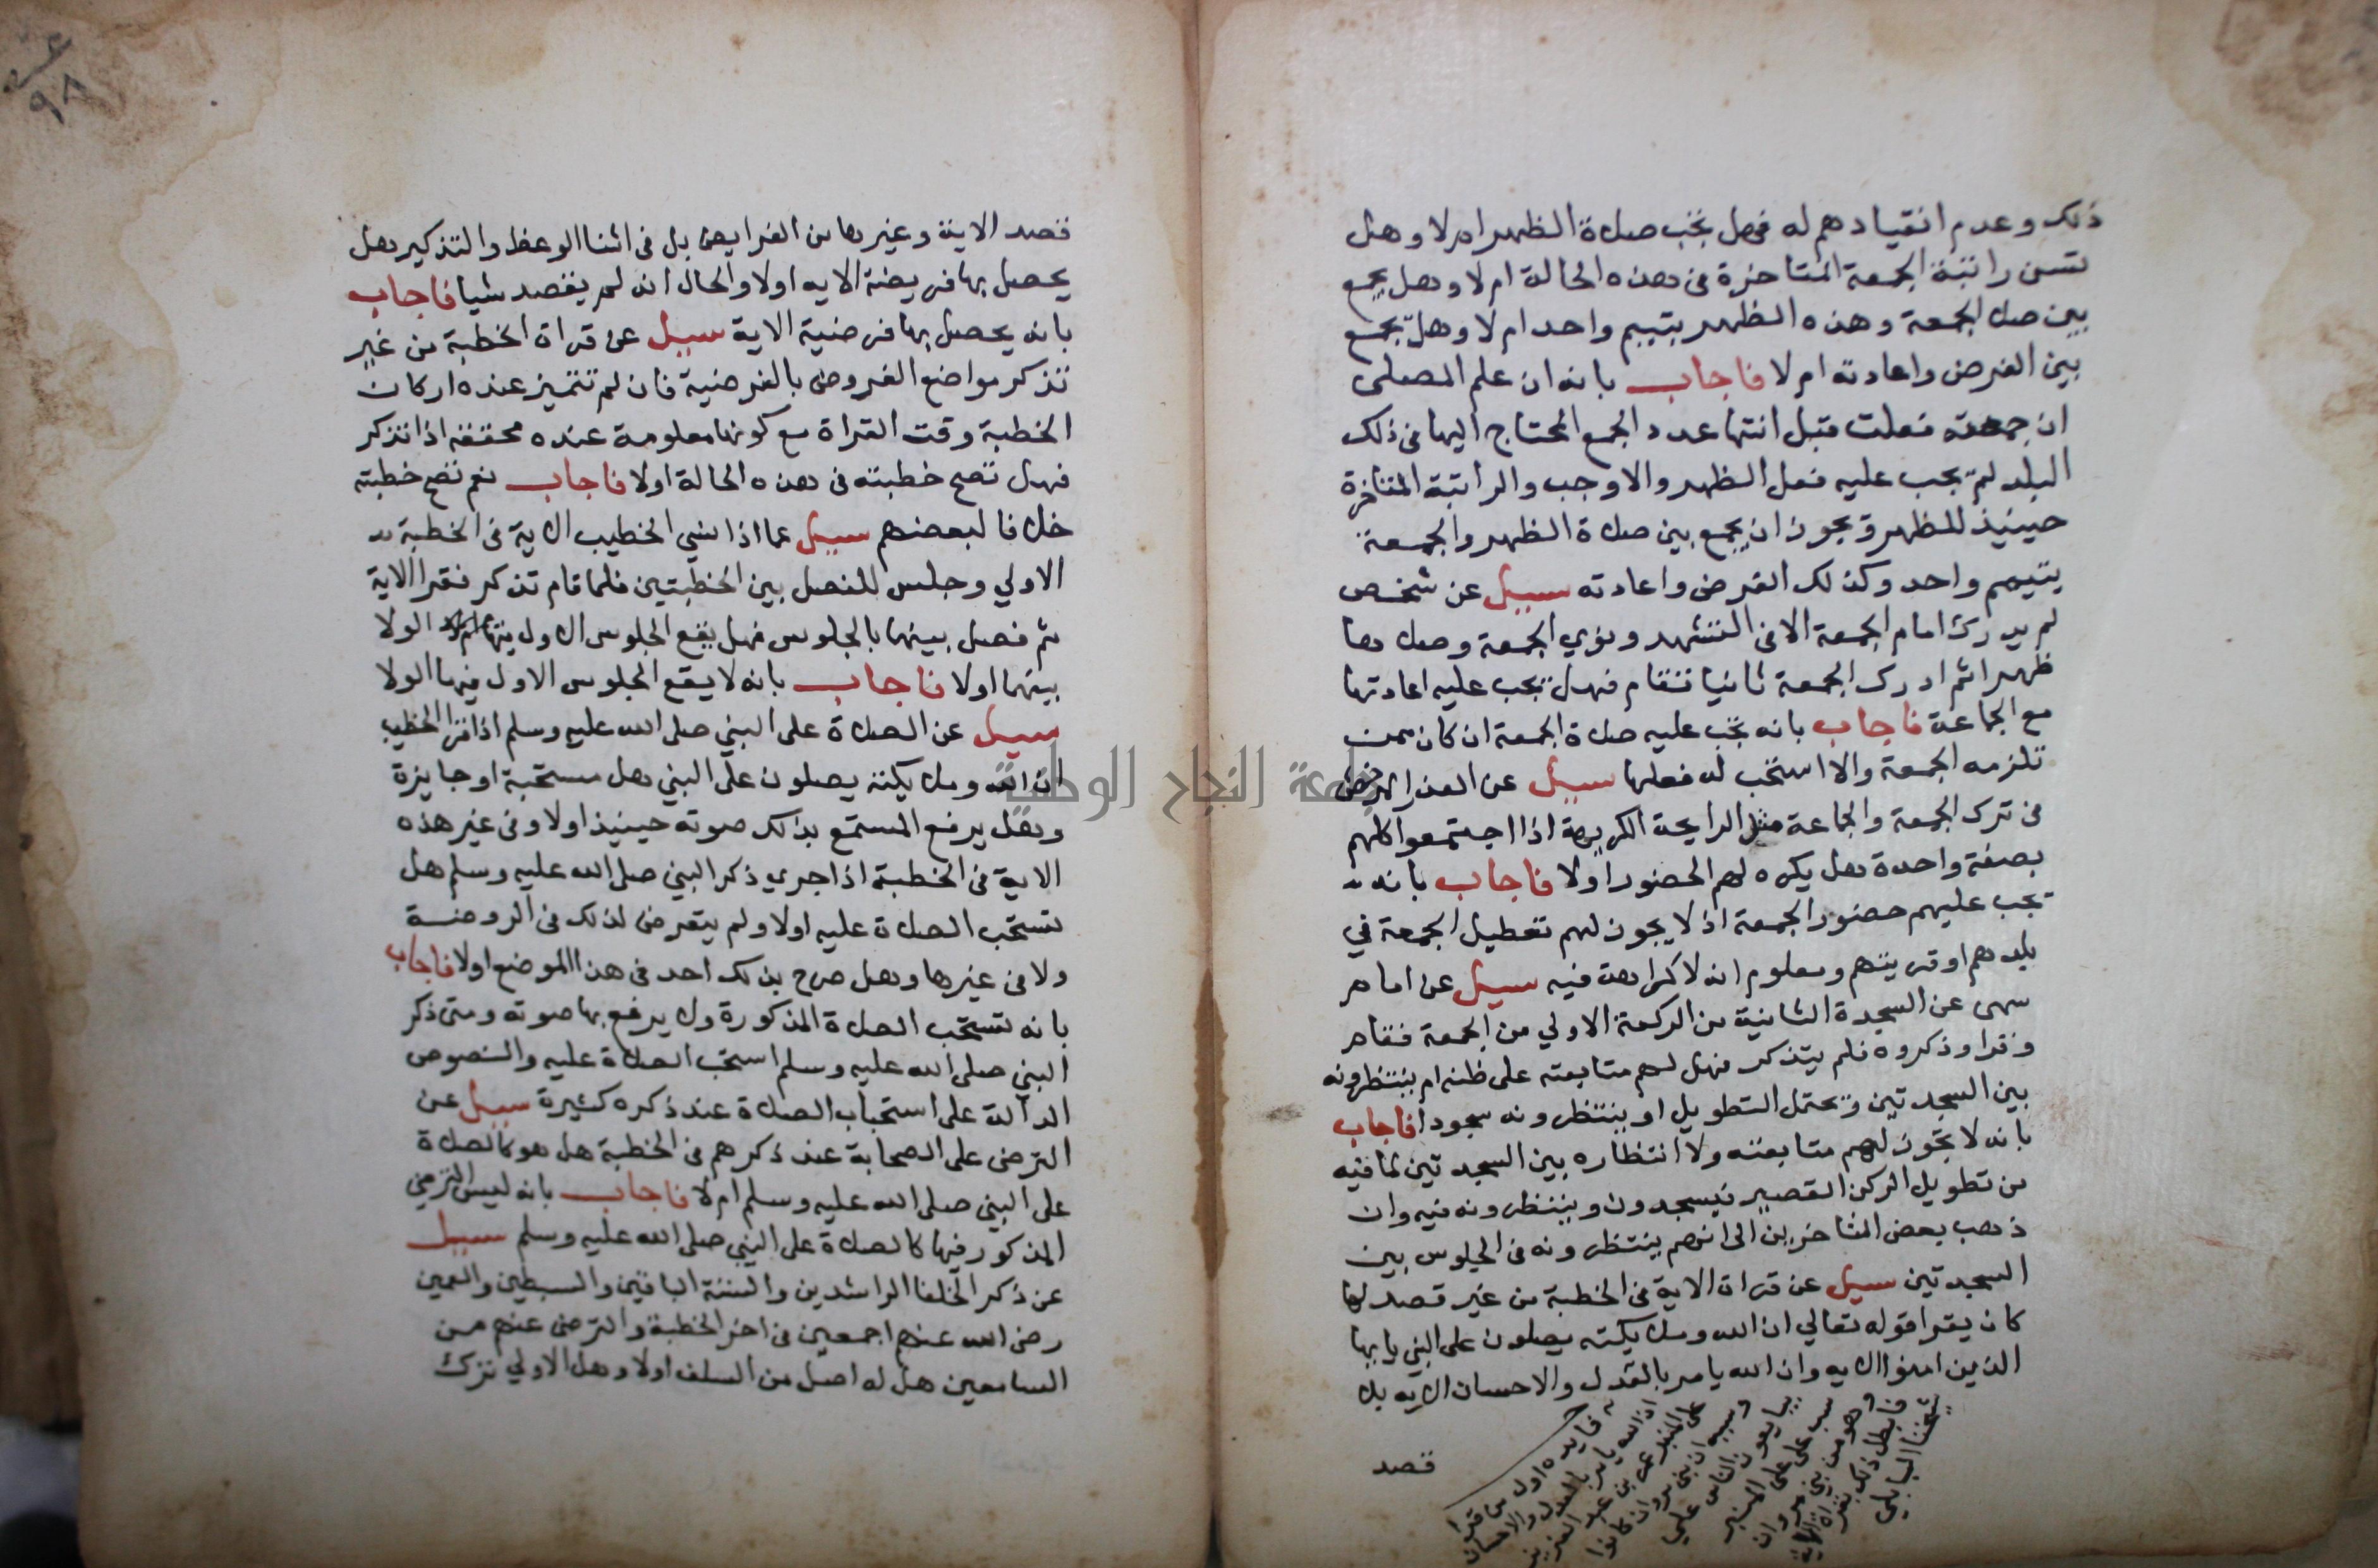 ذلك وعدم انقيادهم له فهل تجب صلاة الظهر ام لا وهل
تسن راتبة الجمعة المتاخرة فى هذه الحالة ام لا وهل يجمع
بين صلاة الجمعة وهذه الظهر بتيمم واحد ام لا وهل يجمع
بين الفرض واعادته ام لا فاجاب بانه ان علم المصلى
ان جمعته فعلت قبل انتها عدد الجمع المحتاج اليها فى ذلك
البلد لم يجب عليه فعل الظهر والا وجب والراتبة المتاخرة
حينيذ للظهر ويجوز ان يجمع بين صلاة الظهر والجمعة
بتيمم واحد وكذلك الفرض واعادته سيل عن شخص
لم يدرك امام الجمعة الا فى التشهد ونوي الجمعة وصلاها
ظهرا ثم ادرك الجمعة ثانيا تقام فهل تجب عليه اعادتها
مع الجماعة فاجاب بانه تجب عليه صلاة الجمعة ان كان ممن
تلزمه الجمعة والا استحب له فعلها سيل عن العذر المرخص
فى ترك الجمعة والجماعة مثل الرايحة الكريهة اذا اجتمعوا كلهم
بصفة واحدة هل يكره لهم الحضور اولا فاجاب بانه
تجب عليهم حضور الجمعة اذ لا يجوز لهم تعطيل الجمعة في
بلدهم او قريتهم ومعلوم انه لا كراهة فيه سيل عن امام
سهى عن السجدة الثانية من الركعة الاولي من الجمعة فقام
وقرا وذكروه فلم يتذكر فهل لهم متابعته على ظنه ام ينتظرونه
بين السجدتين ويحتمل التطويل او ينتظرونه سجودا فاجاب
بانه لا يجوز لهم متابعته ولا انتظاره بين السجدتين لما فيه
من تطويل الركن القصير فيسجدون وينتظرونه فيه وان
ذهب بعض المتاخرين الى انهم ينتظرونه فى الجلوس بين
السجدتين سيل عن قراة الاية فى الخطبة من غير قصد لها
كان يقرا قوله تعالي ان الله وملايكته يصلون على النبي يا ايها
الذين امنوا الايه وان الله يامر بالعدل والاحسان الايه بل
قصد
فايده اول من قرا
ان الله يامر بالعدل والاحسان
على المنبر عمر بن عبد العزيز
وسببه ان بنى مروان كانوا
يبايعون الناس على
سب على على المنبر
وهو من بنى مروان
فابطل ذلك بقراة الاية
شيخنا البابلي
قصد الاية وغيرها من الفرايض بل فى اثنا الوعظ والتذكير هل
يحصل بها فريضة الايه اولا والحال انه لم يقصد شيا فاجاب
بانه يحصل بها فرضية الاية سيل عن قراة الخطبة من غير
تذكر مواضع الفروض بالفرضية فان لم تتميز عنده اركان
الخطبة وقت القراة مع كونها معلومة عنده محققه اذا تذكر
فهل تصح خطبته فى هذه الحالة اولا فاجاب نعم تصح خطبته
خلافا لبعضهم سيل عما اذا نسي الخطيب الاية فى الخطبة
الاولي وجلس للفصل بين الخطبتين فلما قام تذكر فقرا الاية
ثم فصل بينهما بالجلوس فهل يقع الجلوس الاول الولا
بينهما اولا فاجاب بانه لا يقع الجلوس الاول فيها الولا
سيل عن الصلاة على النبي صلى الله عليه وسلم اذا قرا الخطيب
ان الله وملايكته يصلون على النبي هل مستحبة او جايزة
وهل يرفع المستمع بذلك صوته حينيذ اولا وفى غير هذه
الاية فى الخطبة اذا جري ذكر النبي صلى الله عليه وسلم هل
تستحب الصلاة عليه اولا ولم يتعرض لذلك فى الروضة
ولا فى غيرها وهل صرح بذلك احد فى هذا الموضع اولا فاجاب
بانه تستحب الصلاة المذكورة ولا يرفع بها صوته ومتى ذكر
النبي صلى الله عليه وسلم استحب الصلاة عليه والنصوص
الدالة على استحباب الصلاة عند ذكره كثيرة سيل عن
الترضى على الصحابة عند ذكرهم فى الخطبة هل هو كالصلاة
على النبي صلى الله عليه وسلم ام لا فاجاب بانه ليس الترضي
المذكور فيها كالصلاة على النبي صلى الله عليه وسلم سيل
عن ذكر الخلفا الراشدين والستة الباقين والسبطين والعمين
رضى الله عنهم اجمعين فى اخر الخطبة والترضى عنهم من
السامعين هل له اصل من السلف اولا وهل الاولي ترك
٩٨
جامعة النجاح الوطنية